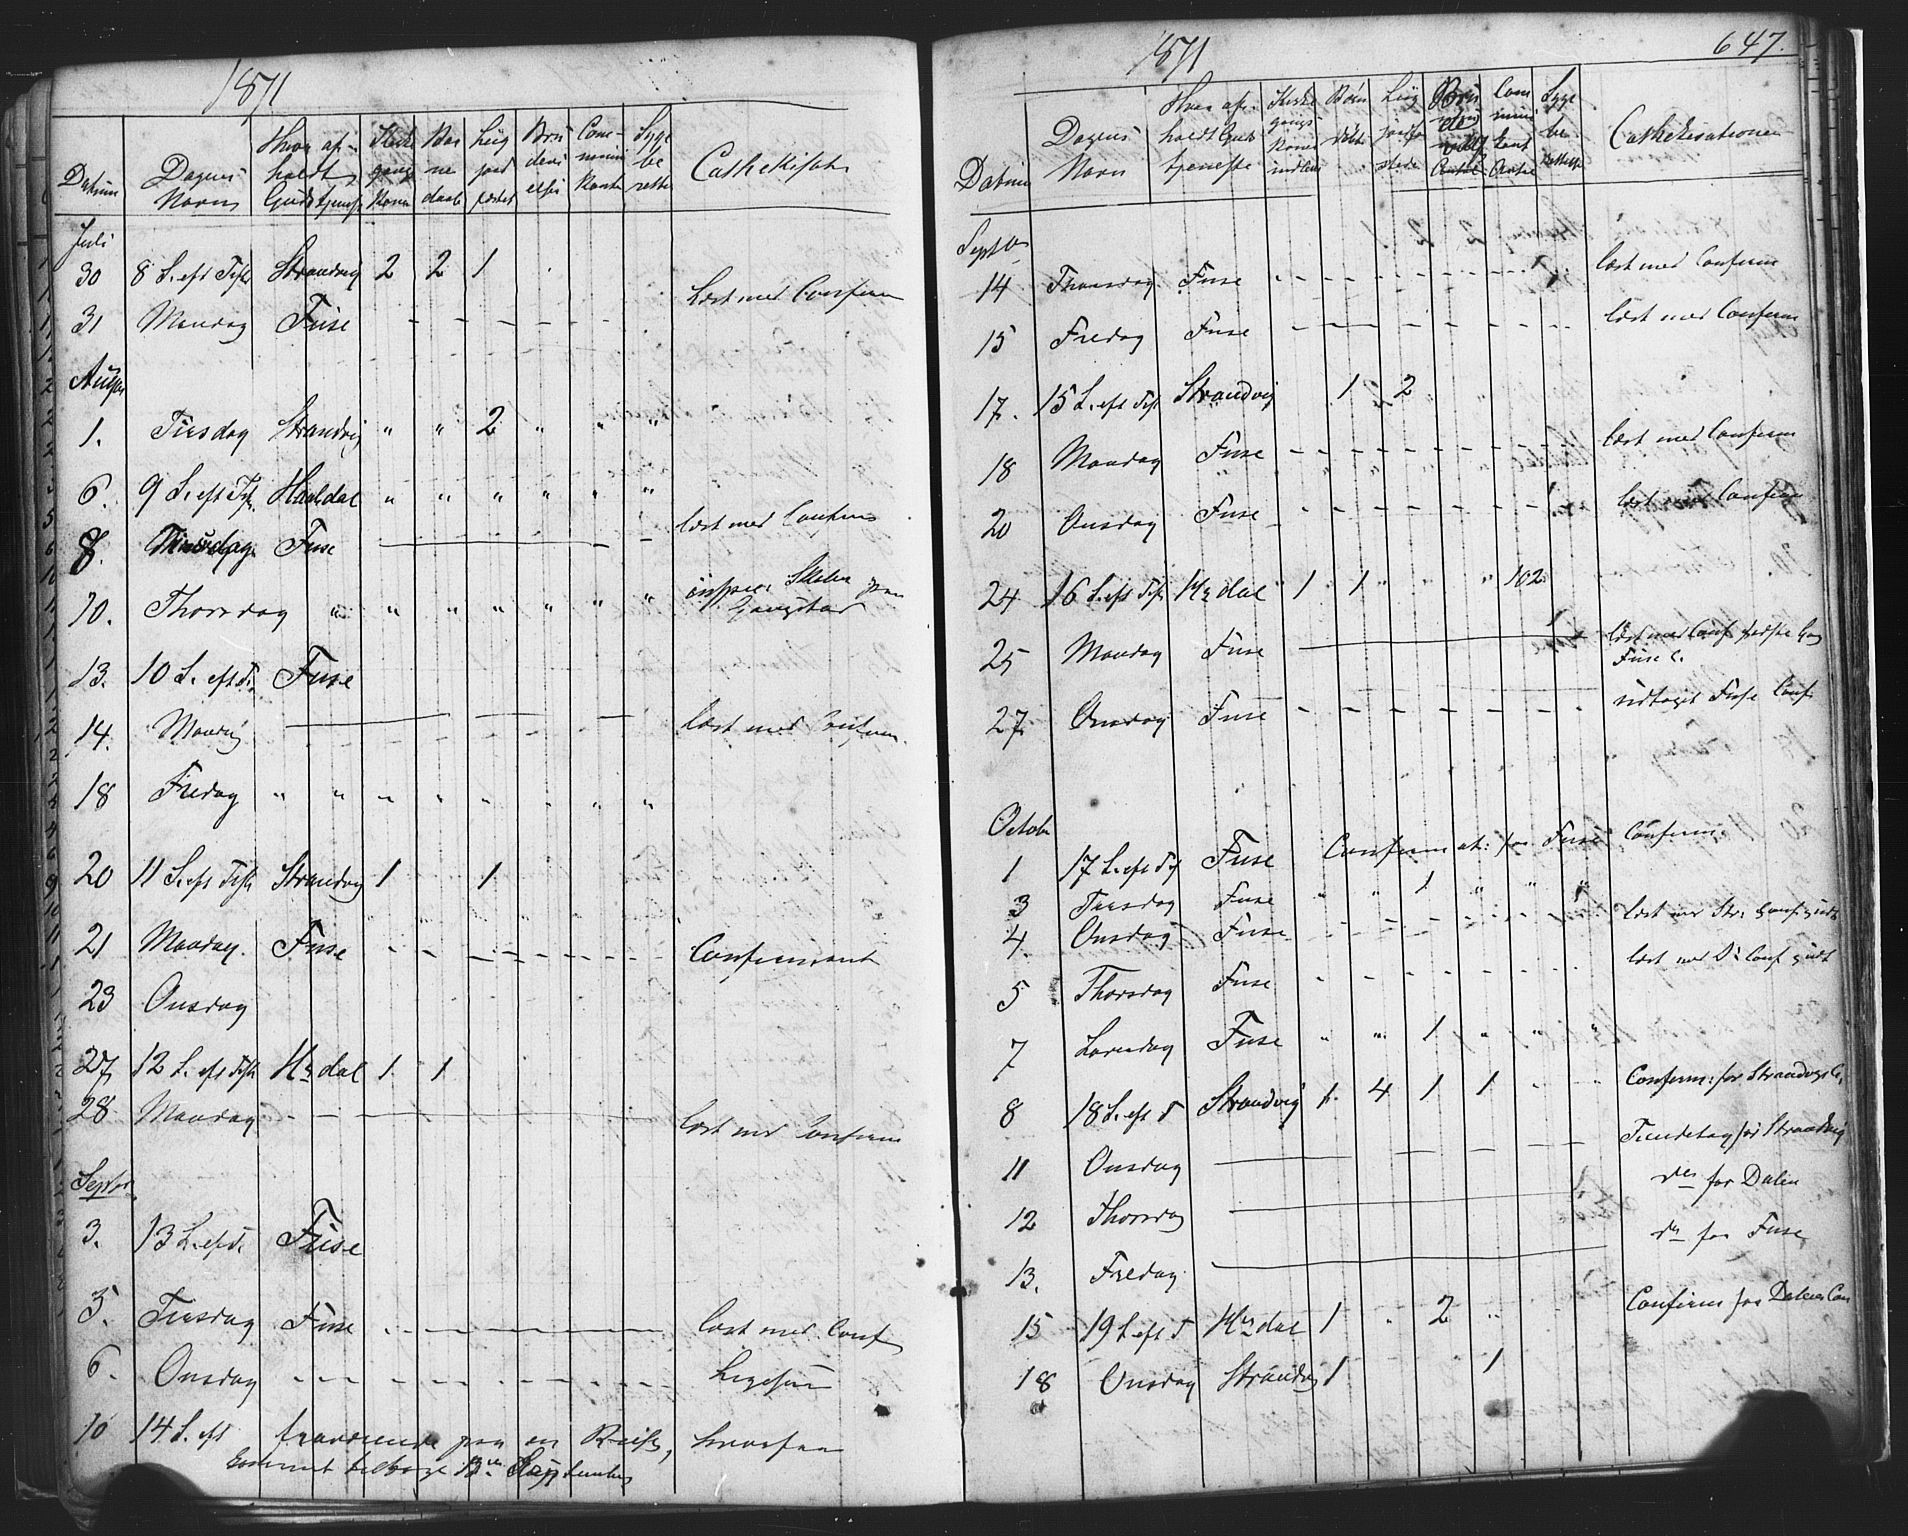 1871
Datum Dagens Navn Hvor afholdt Gudstjeneste Kirkegangs Koner Barnedaab Liig jordfæstet Brudevielser Communicanter Syge berettet Cathekisat
Juli
30 8 S. eft Trfk Strandvig 2 2 1
31 Mandag Fuse læst med Confirm
August
1. Tirsdag Strandvig " " 2 " " "
6. 9 S. eft Trf. Haaldal " " " " " "
8. Fuse læst med Confirm
10. Thorsdag " " " " " " " Skolen paa
13. 10 S. eft T. Fuse
14. Mandag læst med Confirm.
18 Fredag " " " " " " "
20 11 S. eft Trfk Strandvig 1 1
21 Mandag. Fuse Confirmant
23 Onsdag
27 12 S. eft Trfk Hr dal 1 1
28 Mandag læst med Confirm
Septbr
3. 13 S. eft T. Fuse
5. Tirsdag Fuse læst med Conf
6. Onsdag Ligesaa
10 14 S. eft fraværende paa en Reise,
kommet tilbage 13de September
1871 647.
Datum Dagens Navn Hvor afholdt Gudstjeneste Kirkegangs Koner indledt Børn døbt Liig jordfæstede Communicant Antal Syge berettede Cathekisationen
Septbr
14 Thorsdag Fuse læst med Confirm
15 Fredag Fuse læst med Confirm
17. 15 S. eft Trf Strandvig 1 2
18 Mandag Fuse læst med Confirm
20 Onsdag Fuse læst med Confirm
24 16 S. eft Trf. Hr dal 1 1 " " " 102
25 Mandag Fuse læst med Conf sidste Gang Fuse C.
27 Onsdag Fuse udtaget Fuse Conf
October
1 17 S. eft Tf Fuse Confirmat: for Fuse Confirm.
3 Tirsdag Fuse " " 1 " " "
4. Onsdag Fuse læst med Str. Conf. judt
5 Thorsdag Fuse læst med D. Conf judt
7 Løverdag Fuse " " 1 " " "
8 18 S. eft T Strandvig 1. 4 1 1 " " Confirm: for Strandvigs C.
11 Onsdag Tiendetag for Strandvig
12 Thorsdag des for Dalen
13. Fredag ds for Fuse
15 19 S. eft T Hr dal 1 " 2 " Confirm for Dalens Con
18 Onsdag Strandvig 1 1